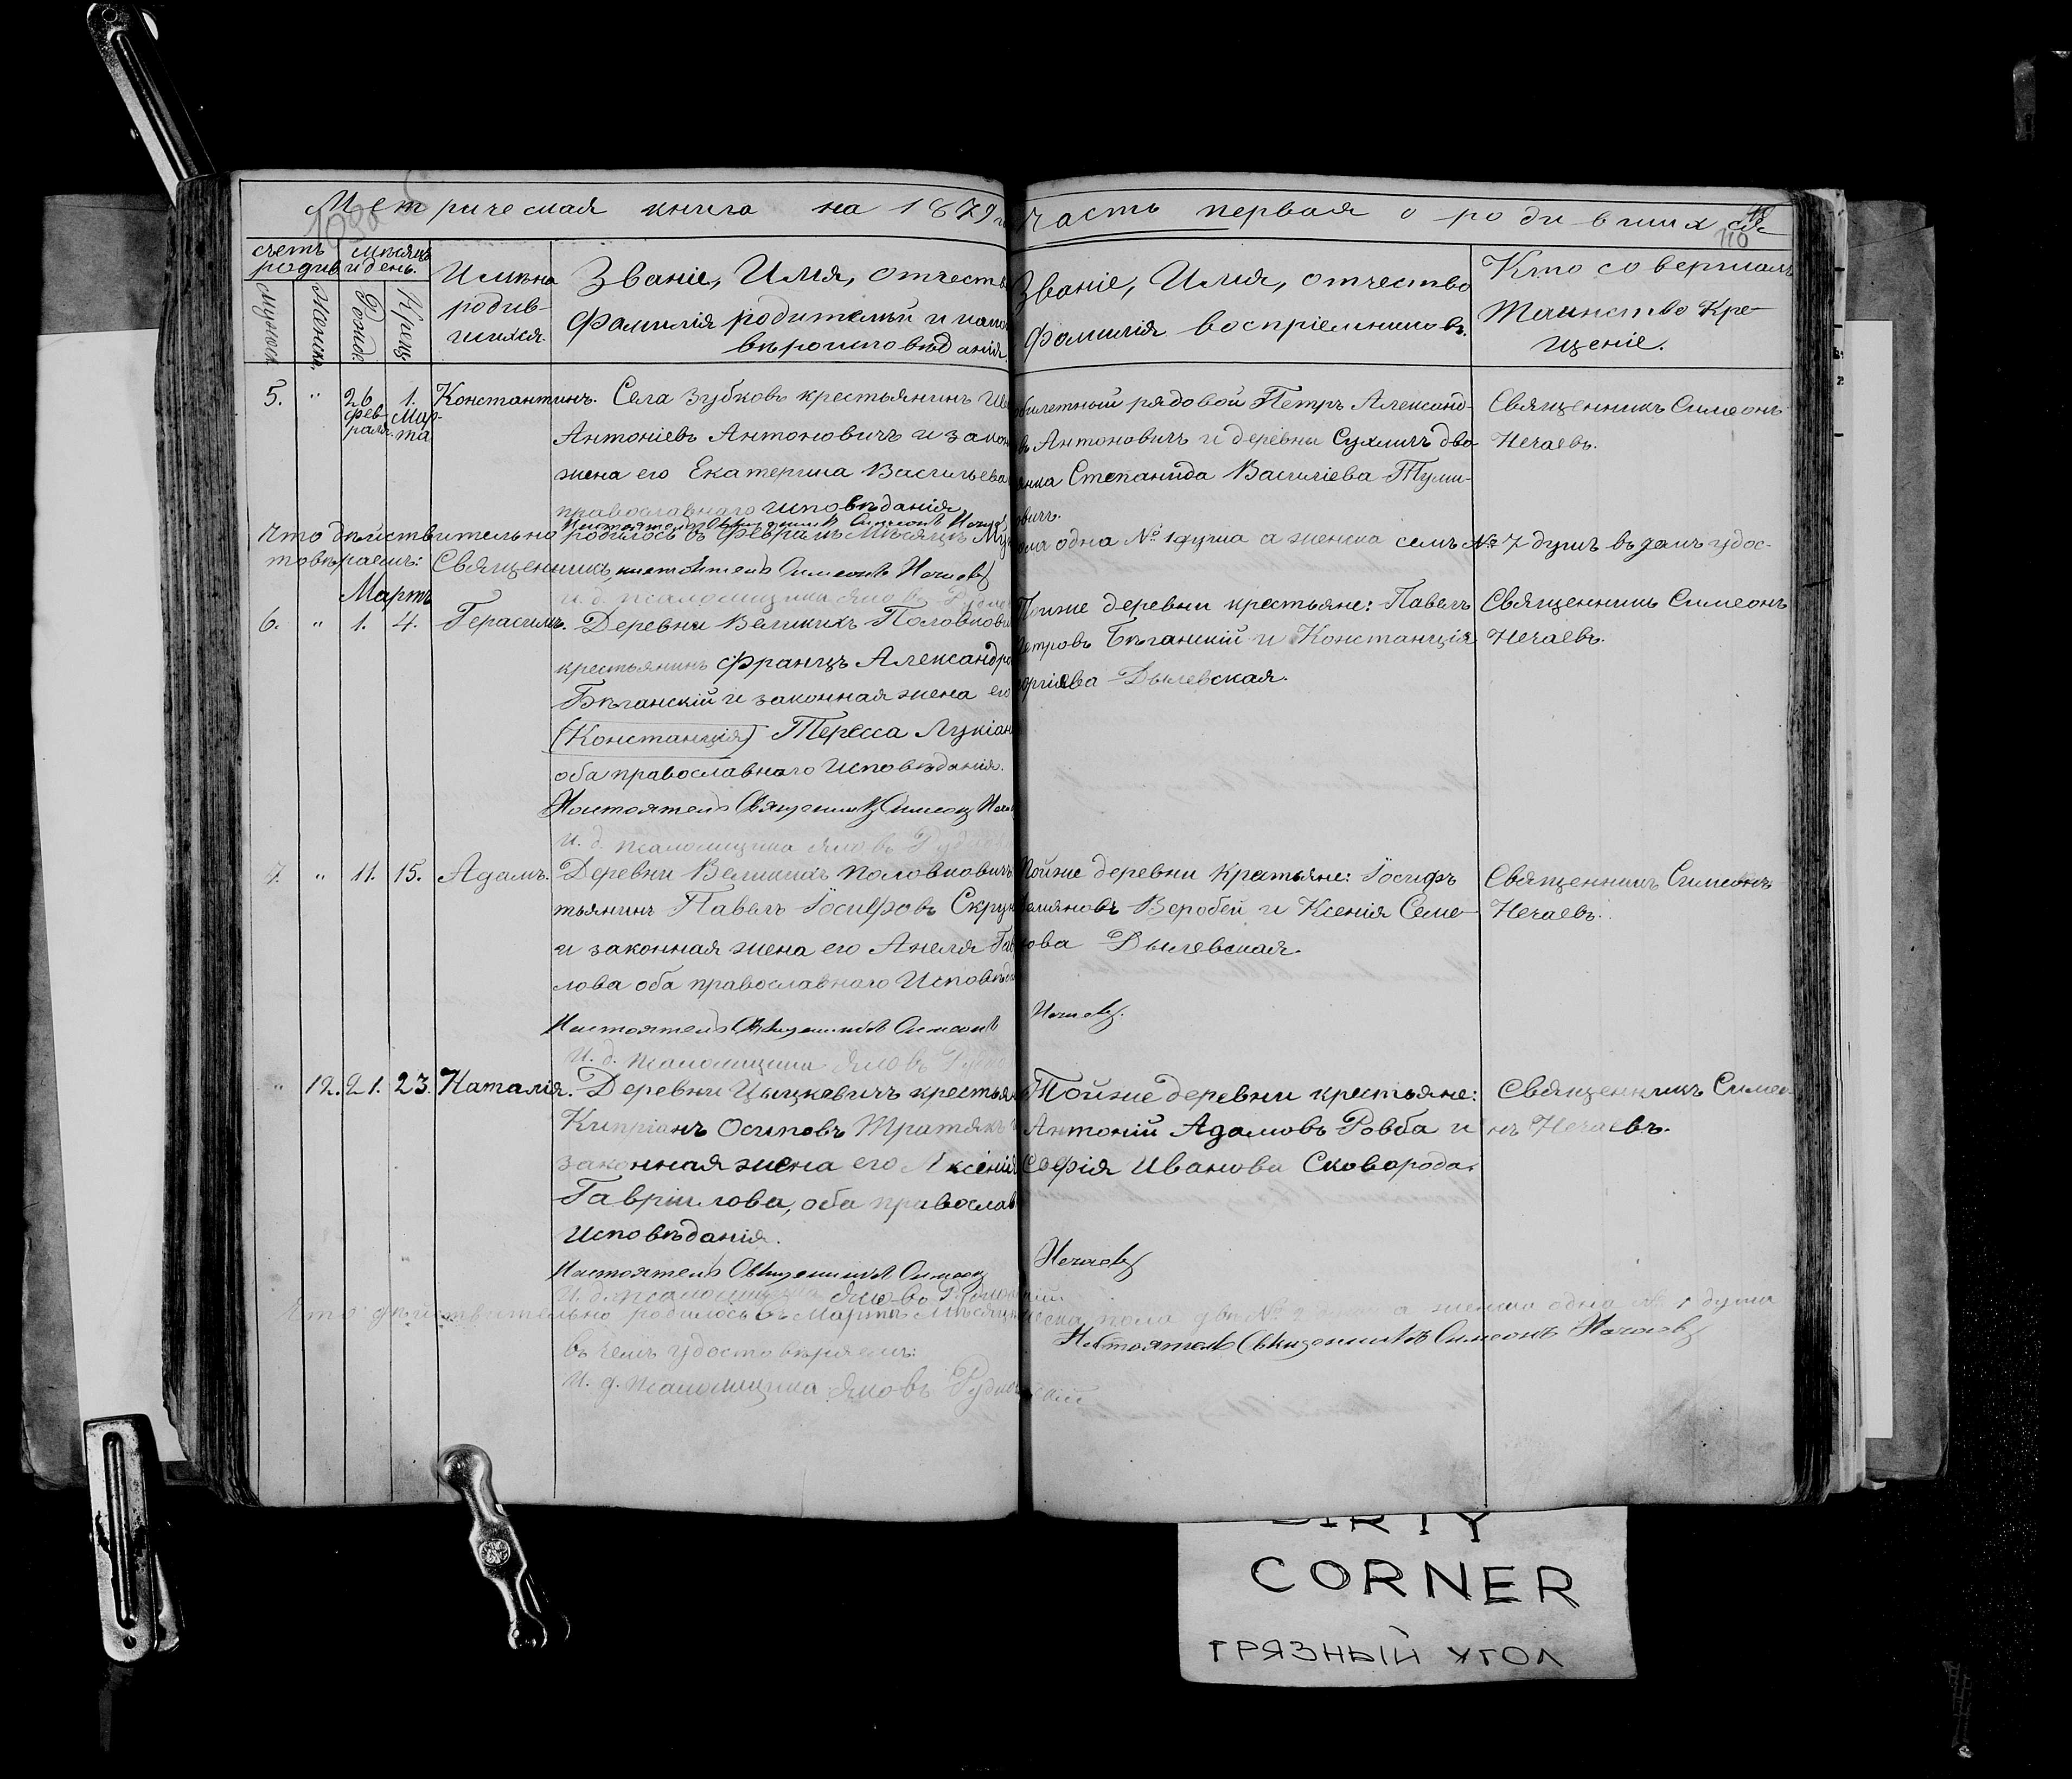 Метрическая книга на 1879 г.
часть первая о родившихся
110
счетъ родив.
Мѣсяцъ и день.
Мужеск.
Женск.
Рожд.
Крещ.
Имѣна родив-
шихся.
Званіе, Имя, отчеств
Фамилія родителей и како
вѣроисповѣданія.
Званіе, Имя, отчество
Фамилія воспріемниковъ.
Кто совершалъ
Таинство Кре-
щеніе.
5. " 26 фев-раля. 1. Мар-та Константинъ. Села Зубковъ крестьянинъ
Антоніевъ Антоновичъ и закон
жена его Екатерина Васильева
православнаго исповѣданія,
билетный рядовой Петръ Александ-
въ Антоновичъ и деревни Сухличъ дво-
янка Степанида Василіева Туми-
овичъ.
Священникъ Симеонъ
Нечаевъ.
Настоятель Священникъ Симеонъ Нечаев
Что дѣйствительно родилось въ Февралѣ Мѣсяцѣ
одна № 1 душа а женска семь № 7 душъ въ чемъ удос-
товѣряемъ: Священникъ настоятель Симеонъ Нечаевъ
И. д. псаломщика Яковъ Рудко
Мартъ
6. " 1. 4. Герасимъ. Деревни Великихъ Половкович
крестьянинъ Францъ Александро
Бѣганскій и законная жена его
(Констанція) Тересса Лукіан
оба православнаго Исповѣданія.
Настоятель Священникъ Симеонъ Неча
И. д. псаломщика Яковъ Рудко
Тойже деревни крестьяне: Павелъ
Петровъ Бѣганскій и Констанція
оргіева Дылевская.
Священникъ Симеонъ
Нечаевъ.
7. " 11. 15. Адамъ. Деревни Великихъ Половковичъ
тьянинъ Павелъ Іосифовъ Скрун
и законная жена его Анеля Гав
лова оба православнаго Исповѣд
Настоятель Священникъ Симеонъ
Нечаевъ.
И. д. псаломщика Яковъ Рудко
Тойже деревни Кратьяне: Іосифъ
Демяновъ Веробей и Ксенія Семе-
нова Дылевская.
Священникъ Симеонъ
Нечаевъ.
" 12. 21. 23. Наталія. Деревни Цыцкевичъ крестьян
Кипріанъ Осиповъ Тратякъ и
законная жена его Аксенія
Гавріилова, оба православ
исповѣданія.
Настоятель Священникъ Симеонъ
Нечаевъ
И. д. псаломщика Яковъ Рудко
Тойже деревни крестьяне:
Антоній Адамовъ Ровба и
Софія Иванова Сковорода.
Священникъ Симео-
нъ Нечаевъ.
Что дѣйствительно родилось въ Мартѣ Мѣсяцѣ
ска пола два № 2 а женска одна № 1 душа
въ чемъ удостовѣряемъ:
Настоятель Священникъ Симеонъ Нечаевъ
И. д. псаломщика Яковъ Рудко
DIRTY
CORNER
ГРЯЗНЫЙ УГОЛ